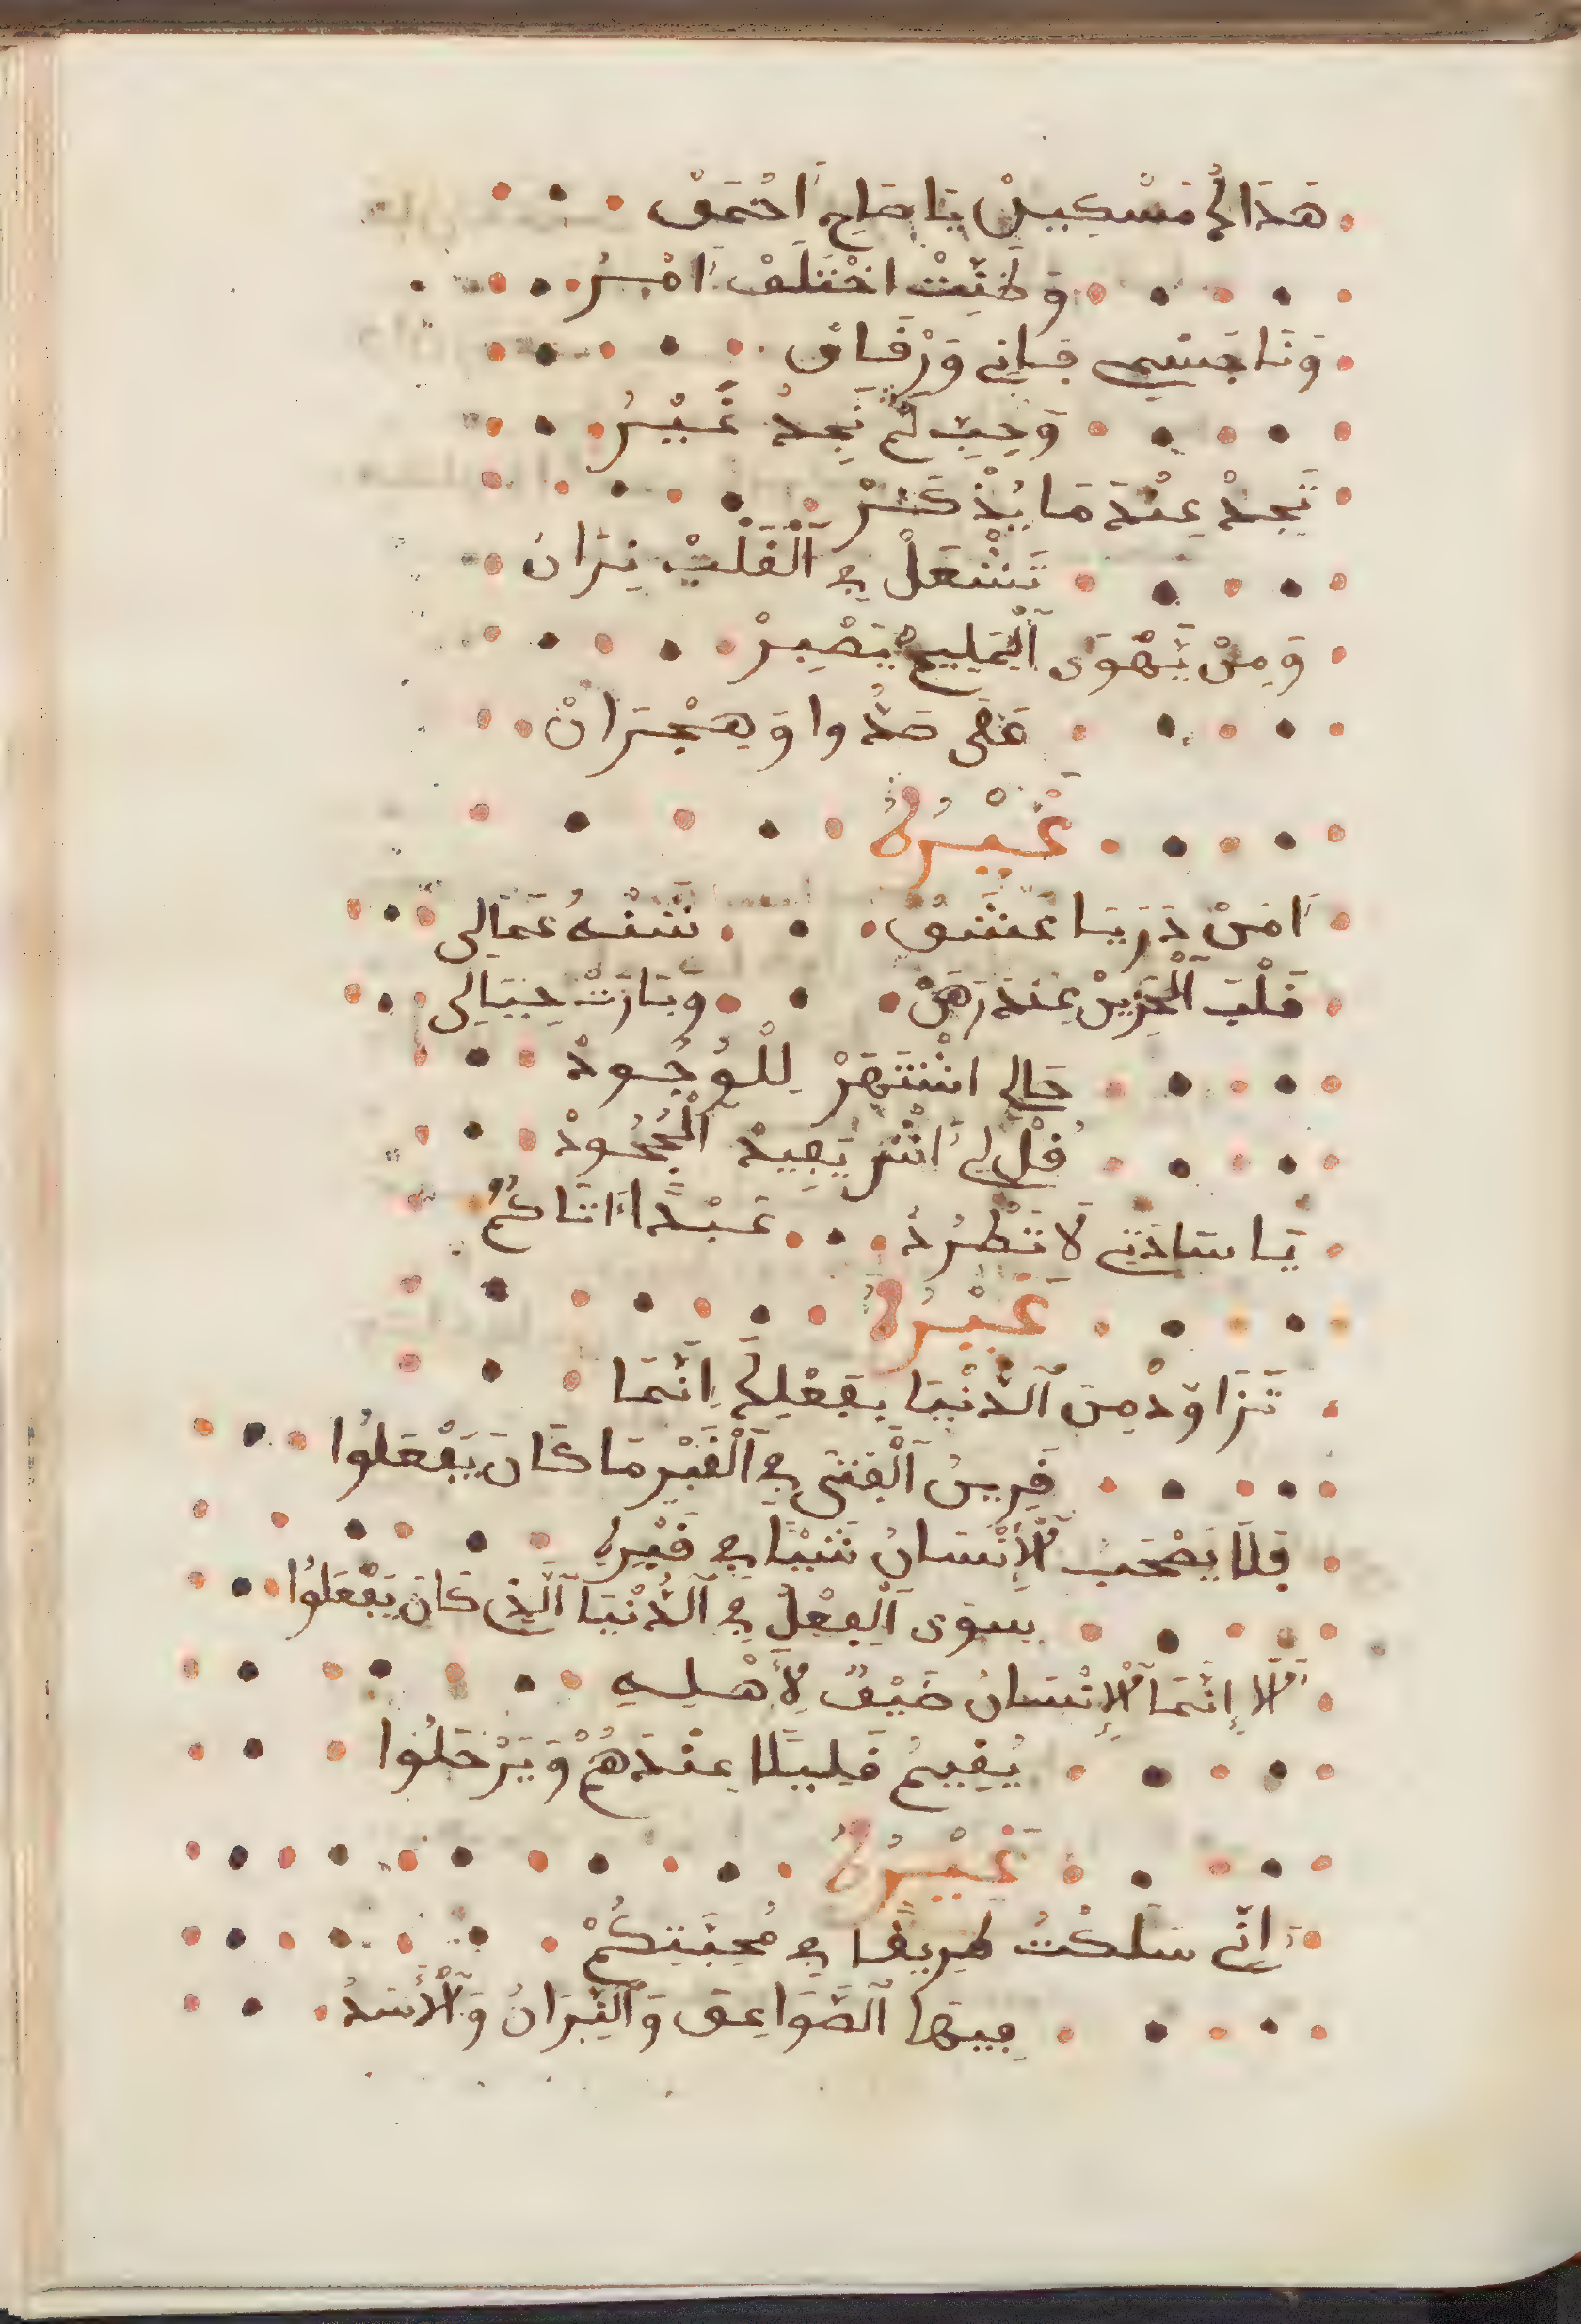 هَذَا لِمَسْكِينْ يَا صَاحِ اَحْمَقْ
وَظَنِّتْ اخْتَلَفْ اَمْرُ
وَنَا جَسْمِي فَانِي وَرْقَاقْ
وَحِبِّ لَمْ نَجِدْ غَيْرُ
نَجِدْ عِنْدَ مَا يُذْكَرْ
تَشْعَلْ فِي اَلْقَلْبْ نِرَانْ
وَمِنْ يَهْوَى اَلْمَلِيحْ يَصْبِرْ
عَلَى صَدُّوا وَهِجْرَانْ
غَيْرُهُ
اَمَنْ دَرَيَا عَشَقْ شَنْهُ عَمَالِي
قَلْبَ الْحَزِينْ عِنْدَ رَهَنْ وَبَارَتْ حِيَالِي
حَالِي اشْتَهَرْ لِلْوُجُودْ
قُلْ لِي اَشْ يَفِيدْ اَلْجُحُودْ
يَا سَادَتِي لَا تَطْرُدُ عَبْدًا اَتَاكُمْ
غَيْرُهُ
تَزَاوَدْ مِنَ اَلدُّنْيَا بِفِعْلِكَ اِنَّمَا
قَرِينُ اَلْفَتَى فِي اَلْقَبْرِ مَا كَانَ يَفْعَلُوا
فَلَا يَصْحَبُ اَلْإِنْسَانُ شَيْئًا فِي قَبْرِهِ
سِوَى اَلْفِعْلُ فِي اَلدُّنْيَا اَلَّذِي كَانَ يَفْعَلُوا
أَلَا إِنَّمَا اَلْإِنْسَانُ ضَيْفٌ لِأَهْلِهِ
يُقِيمُ قَلِيلًا عِنْدَهُمْ وَيَرْحَلُوا
غَيْرُهُ
إِنِّي سَلَكْتُ طَرِيقًا فِي مُحِبَّتِكُمْ
فِيهَا اَلصَّوَاعِقَ وَاَلنِّيرَانُ وَاَلْأَسَدُ